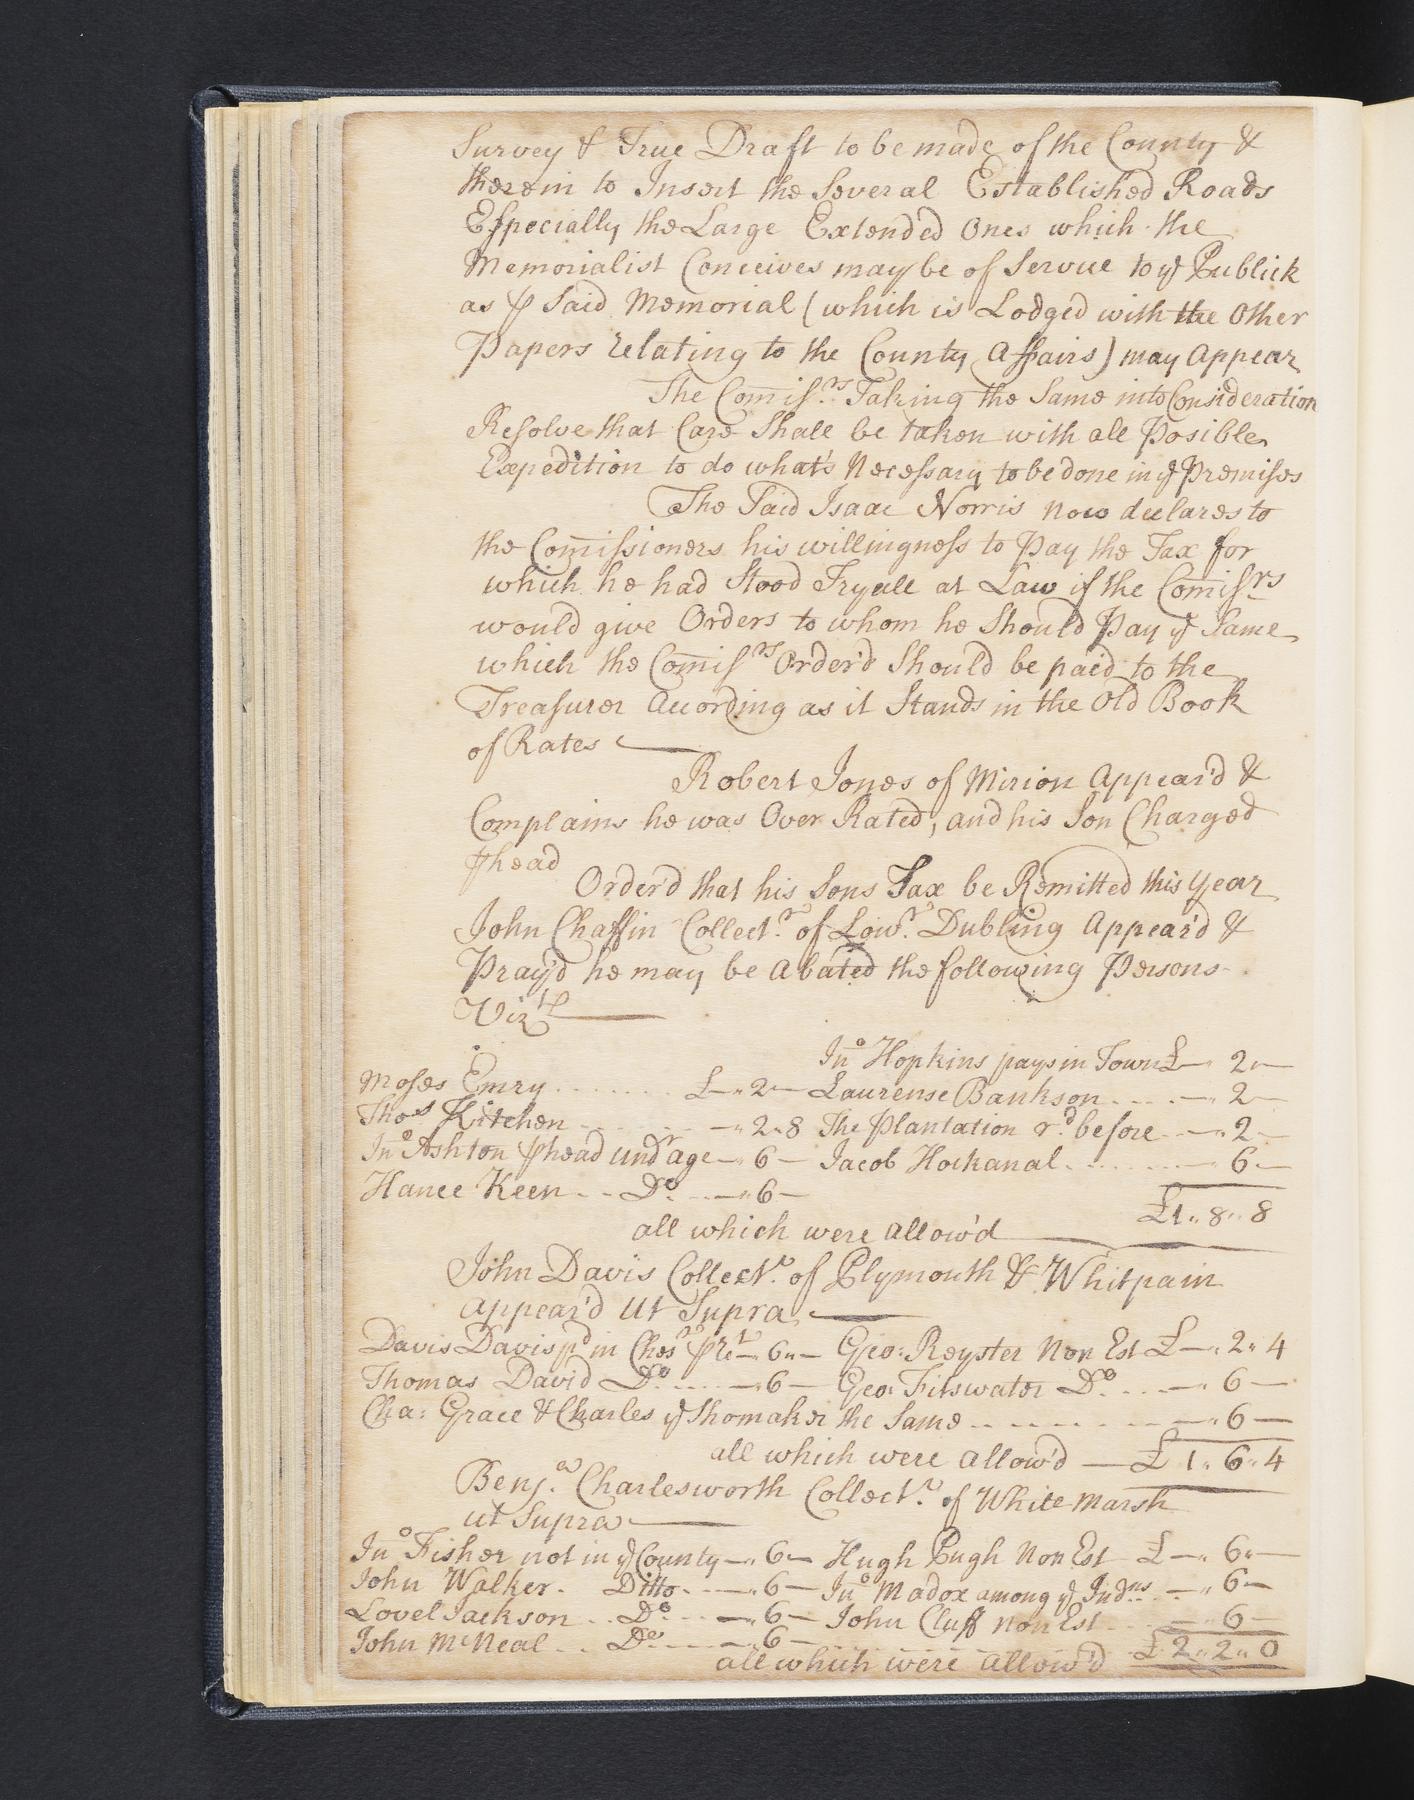 Survey & True Draft to be made of the County &
therein to Insert the Several Established Roads
Especially the Large Extended Ones which the
Memorialist Conceives may be of Service to ye Publick
as ⅌ Said Memorial (which is Lodged with the Other
Papers relating to the County Affairs) may Appear
The Comissrs Taking the Same into Consideration
Resolve that Care Shall be taken with all Posible
Expedition to do what's Necessary to be done in ye Premises
The Said Isaac Norris now declares to
the Comissioners his willingness to Pay the Tax for
which he had Stood Tryall at Law if the Comissrs
would give Orders to whom he Should Pay ye Same
which the Comissrs Order'd Should be paid to the
Treasurer According as it Stands in the Old Book
of Rates
Robert Jones of Mirion Appear'd &
Complains he was Over Rated, and his Son Charged
⅌ head
Order'd that his Sons Tax be Remitted this Year
John Chaffin Collectr of Lowr Dubling Appear'd &
Pray'd he may be Abated the following Persons
Vizt
Jno Hopkins pays in Town £ — 2 —
Moses Emry ...... £ — " 2 — Laurense Bankson .... — 2 —
Thos Kitchen ...... — " 2 " 8 The Plantation rd before — " 2 —
Jno Ashton ⅌ head undr age — " 6 — Jacob Hockanal ...... — 6 —
Hance Keen .. Do .. — " 6 —
£1 " 8 " 8
all which were Allow'd
John Davis Collectr of Plymouth & Whitpain
appear'd Ut Supra
Davis Davis pd in Chesr ⅌ Rect — 6 " — Geo: Royster Non Est £ — " 2 " 4
Thomas David Do .... — " 6 — Geo: Fitswater Do ... — " 6 —
Cha: Grace & Charles ye Shomaker the Same .. — — — " 6 —
all which were Allow'd — £ 1 " 6 " 4
Benja Charlesworth Collectr of White Marsh
ut Supra
Jno Fisher not in ye County — " 6 — Hugh Pugh Non Est £ — " 6 " —
John Walker. Ditto .. — " 6 — Jno Madox among ye Indns — " 6 —
Lovel Jackson .. Do .. — " 6 — John Cluff Non Est .. — " 6 —
John McNeal .. Do .. — " 6 —
all which were Allow'd £ 2 " 2 " 0